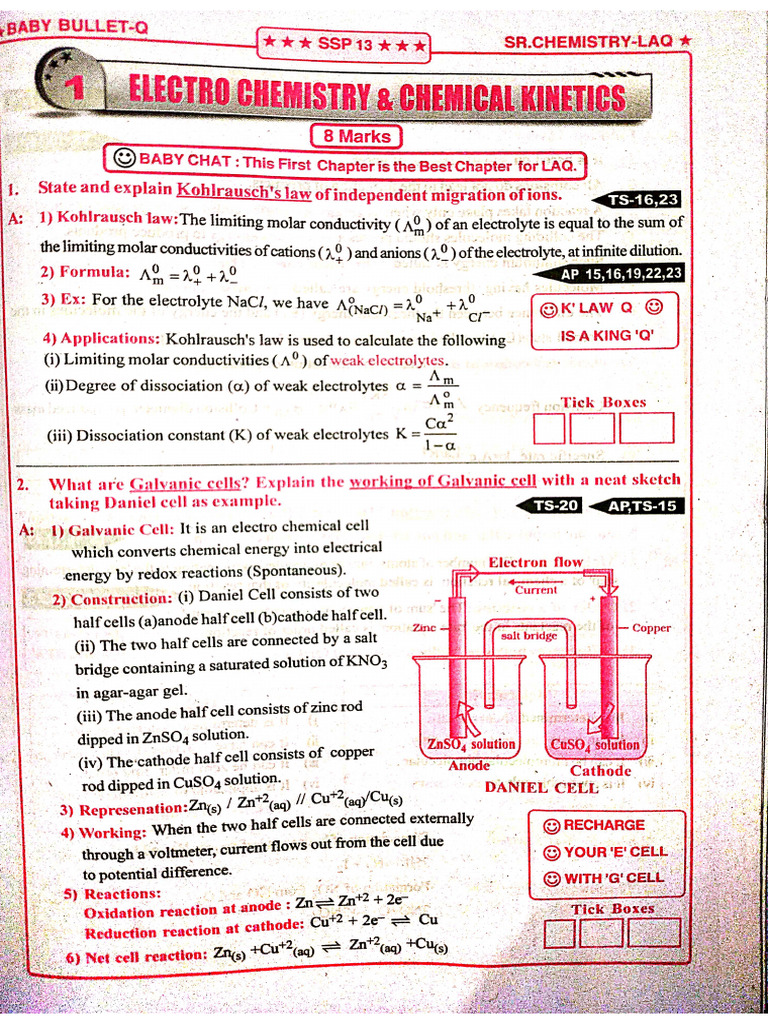 ★BABY BULLET-Q
★ ★ ★ SSP 13 ★ ★ ★
SR.CHEMISTRY-LAQ ★
1 ELECTRO CHEMISTRY & CHEMICAL KINETICS
8 Marks
BABY CHAT : This First Chapter is the Best Chapter for LAQ.
1. State and explain Kohlrausch's law of independent migration of ions.
TS-16,23
A: 1) Kohlrausch law: The limiting molar conductivity (Λ⁰m) of an electrolyte is equal to the sum of
the limiting molar conductivities of cations (λ⁰₊) and anions (λ⁰₋) of the electrolyte, at infinite dilution.
2) Formula: Λ⁰m = λ⁰₊ + λ⁰₋
AP 15,16,19,22,23
3) Ex: For the electrolyte NaCl, we have Λ⁰(NaCl) = λ⁰Na+ + λ⁰Cl−
☺ K' LAW Q ☺
IS A KING 'Q'
4) Applications: Kohlrausch's law is used to calculate the following
(i) Limiting molar conductivities (Λ⁰) of weak electrolytes.
(ii) Degree of dissociation (α) of weak electrolytes α = Λm / Λ°m
Tick Boxes
(iii) Dissociation constant (K) of weak electrolytes K = Cα² / 1−α
2. What are Galvanic cells? Explain the working of Galvanic cell with a neat sketch
taking Daniel cell as example.
TS-20
AP,TS-15
A: 1) Galvanic Cell: It is an electro chemical cell
which converts chemical energy into electrical
energy by redox reactions (Spontaneous).
2) Construction: (i) Daniel Cell consists of two
half cells (a)anode half cell (b)cathode half cell.
(ii) The two half cells are connected by a salt
bridge containing a saturated solution of KNO₃
in agar-agar gel.
(iii) The anode half cell consists of zinc rod
dipped in ZnSO₄ solution.
(iv) The cathode half cell consists of copper
rod dipped in CuSO₄ solution.
Electron flow
Current
−
+
Zinc
salt bridge
Copper
ZnSO₄ solution
CuSO₄ solution
Anode
Cathode
DANIEL CELL
3) Represenation: Zn(s) / Zn⁺²(aq) // Cu⁺²(aq)/Cu(s)
4) Working: When the two half cells are connected externally
through a voltmeter, current flows out from the cell due
to potential difference.
☺ RECHARGE
☺ YOUR 'E' CELL
☺ WITH 'G' CELL
5) Reactions:
Oxidation reaction at anode : Zn ⇌ Zn⁺² + 2e⁻
Reduction reaction at cathode: Cu⁺² + 2e⁻ ⇌ Cu
6) Net cell reaction: Zn(s) + Cu⁺²(aq) ⇌ Zn⁺²(aq) + Cu(s)
Tick Boxes